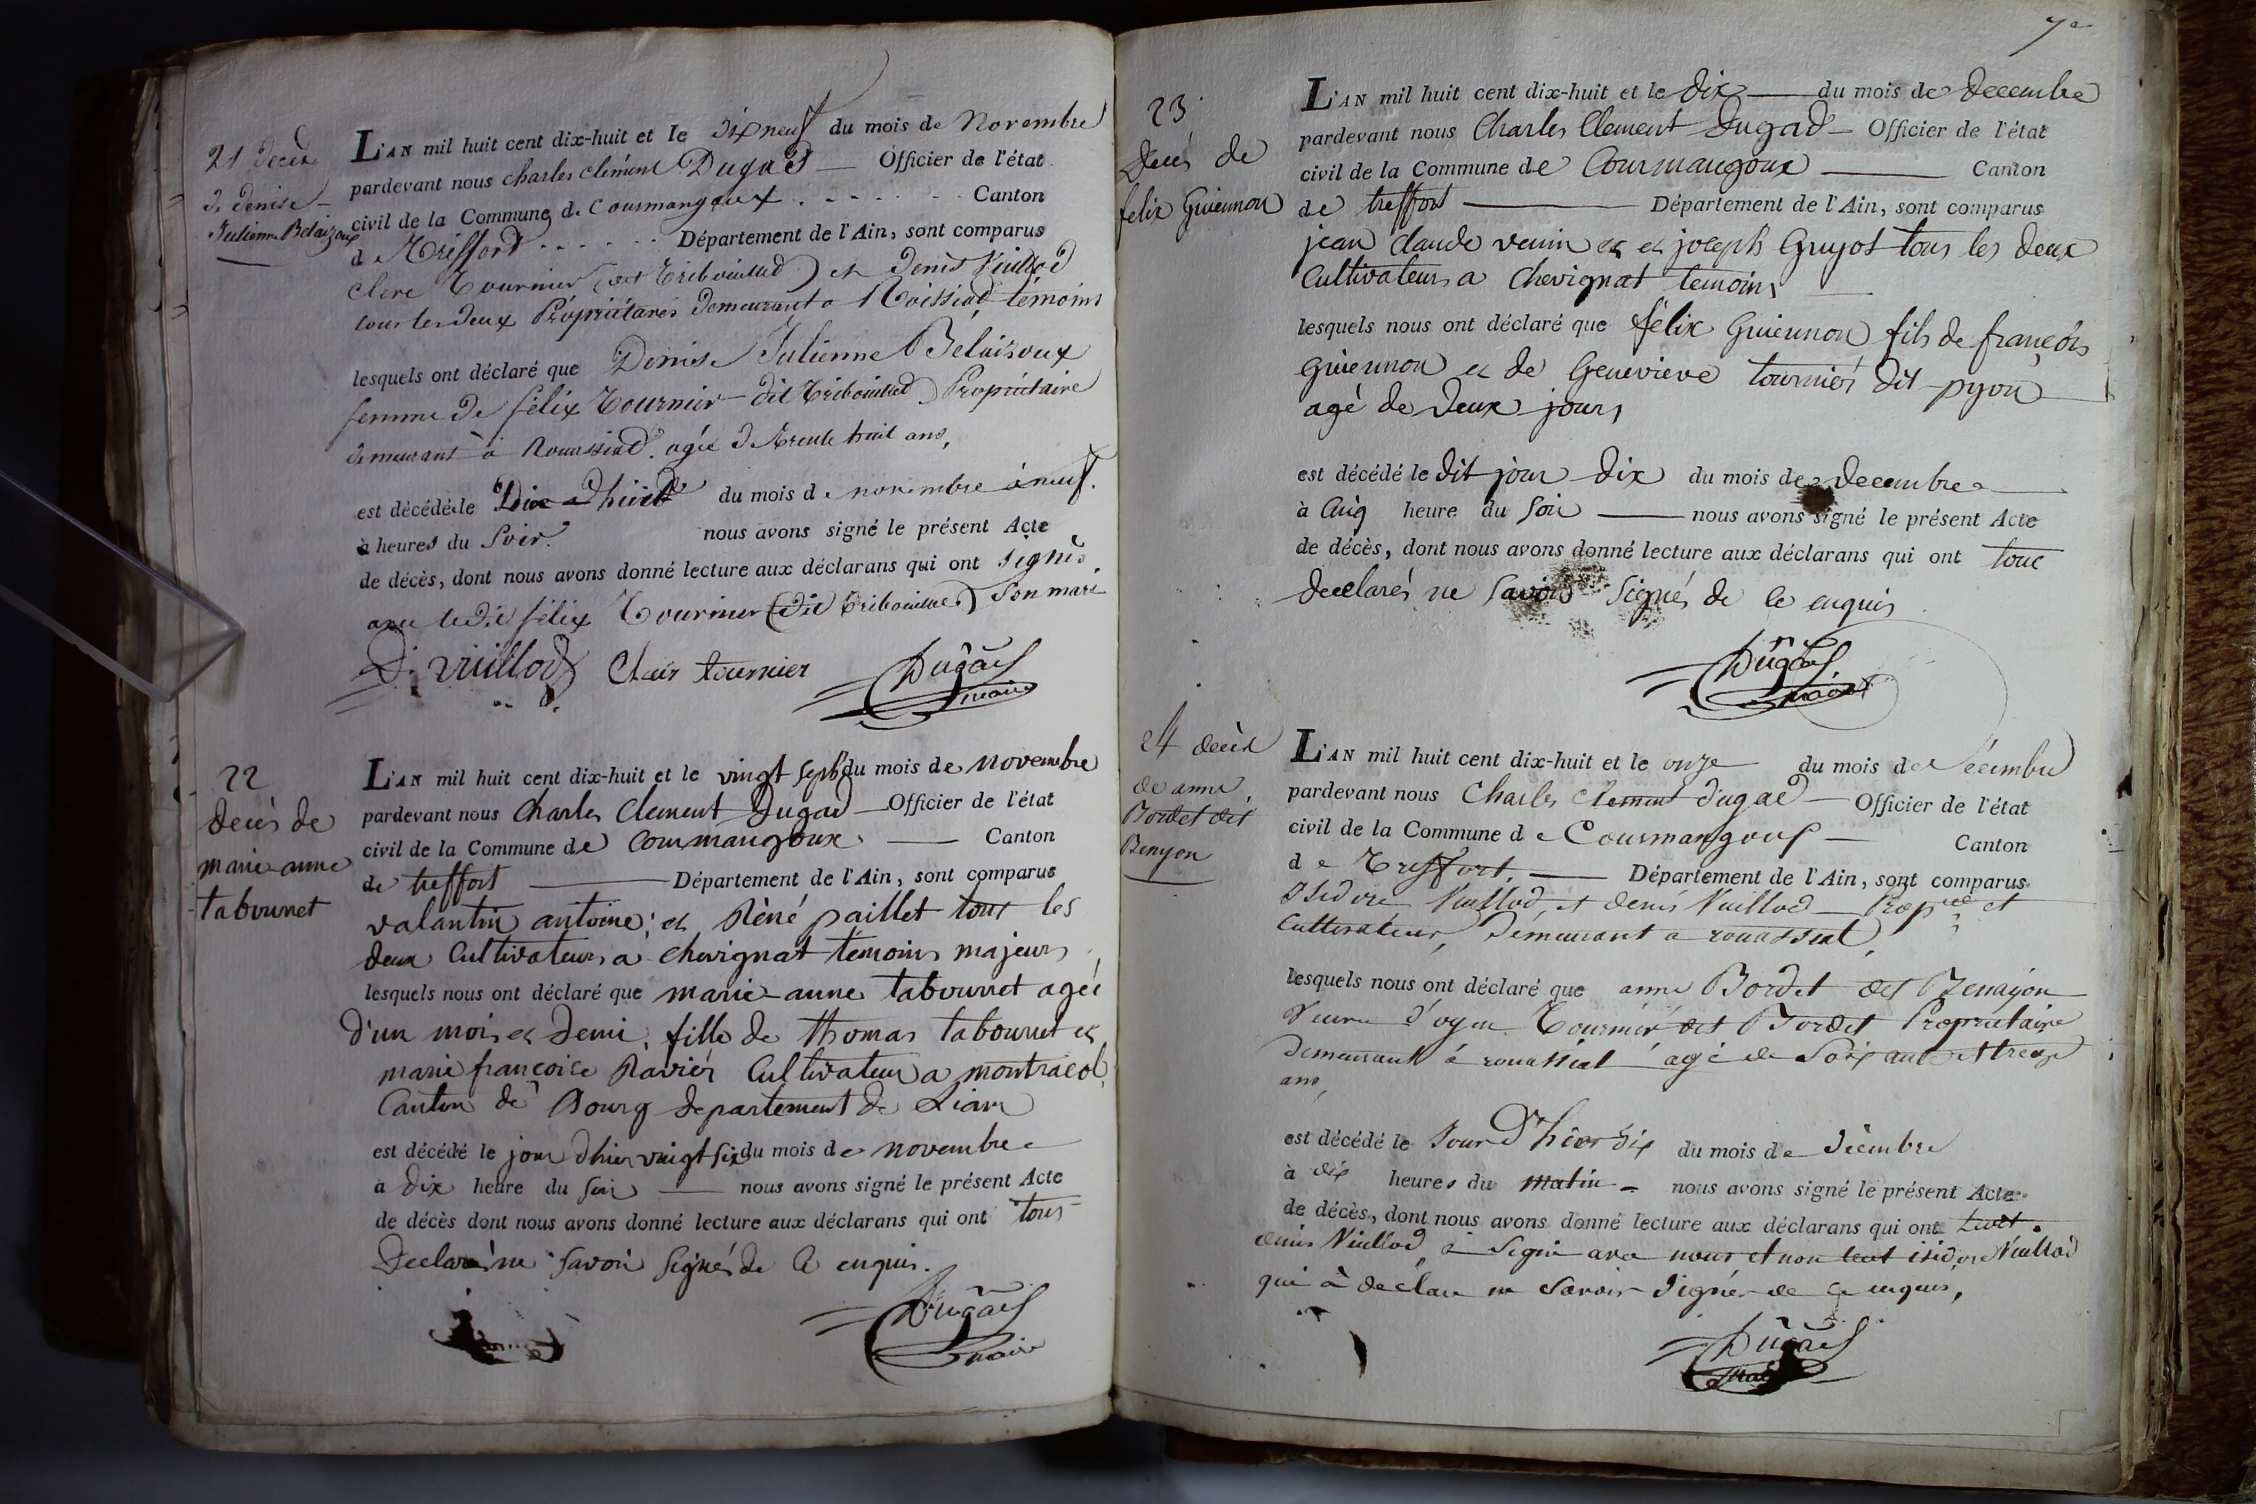 21 Décès
de denise
Julienne Belaizoux
L'AN mil huit cent dix-huit et le dix neuf du mois de Novembre
pardevant nous charles clément Dugad — Officier de l'état
civil de la Commune de Courmangoux . - . . . . - Canton
de Treffort . . . . . . Département de l'Ain, sont comparus
Clere Tournier (dit Tribouillet) et denis Vuillod
tous les deux Propriétaires demeurant a Roissiad, témoins
lesquels ont déclaré que Denise Julienne Belaizoux
femme de félix Tournier dit Tribouillet Propriétaire
demeurant à Rouissiad. agée de trente huit ans,
est décédé le Dix-Dhuit du mois de novembre à neuf.
à heures du Soir. nous avons signé le présent Acte
de décès, dont nous avons donné lecture aux déclarans qui ont signés
avec le dit félix Tournier (dit Tribouillet) Son mari
D. Vuillod Clair tournier Dugad
maire
22
deces de
marie-anne
tabournet
L'AN mil huit cent dix-huit et le vingt sept du mois de novembre
pardevant nous Charles Clement Dugad — Officier de l'état
civil de la Commune de Courmangoux — Canton
de treffort — Département de l'Ain, sont comparus
valantin antoine; et Réné paillet tout les
deux Cultivateurs a chevignat témoins majeurs,
lesquels nous ont déclaré que marie-anne tabournet agée
d'un mois et demi, fille de thomas tabournet et
marie françoise Raviér Cultivateur a montracol
Canton de Bourg departement de Liain
est décédé le jour dhier vingt six du mois de novembre
à dix heure du soir — nous avons signé le présent Acte
de décès dont nous avons donné lecture aux déclarans qui ont tous
Declarés ne savoir signés de ce enquis.
Dugad
maire
7e
23
Deces de
felix Guiennon
L'AN mil huit cent dix-huit et le dix — du mois de decembre
pardevant nous Charles Clement Dugad — Officier de l'état
civil de la Commune de Courmangoux — Canton
de treffort — Département de l'Ain, sont comparus
jean claude venin et et joseph Guyot tous les deux
Cultivateurs a Chevignat temoins
lesquels nous ont déclaré que félix Guiennon fils de françois
Guiennon et de Genevieve tourniér dit pyon
agé de deux jours
est décédé le dit jour dix du mois de decembre
à Cinq heure du soir — nous avons signé le présent Acte
de décès, dont nous avons donné lecture aux déclarans qui ont tous
declarés ne savoir signés de ce enquis
Dugad
maire
24 décès
de anne
Bordet dit
Benyon
L'AN mil huit cent dix-huit et le onze du mois de décembre
pardevant nous Charles Clement dugad — Officier de l'état
civil de la Commune de Courmangoux — Canton
de Treffort. — Département de l'Ain, sont comparus
Isidore Vuillod, et denis Vuillod — Propre et
Cultivateur, Demeurant a rouassiat,
lesquels nous ont déclaré que anne Bordet dit Benayon
Veuve d'oyen Tourniér dit Bordet Propriétaire
demeurant à rouassiat agé de Soixante et treize
ans,
est décédé le Jour D'hier dix du mois de décembre
à dix heures du matin - nous avons signé le présent Acte
de décès, dont nous avons donné lecture aux déclarans qui ont ledit.
denis Vuillod, a signé avec nous, et non ledit isidore Vuillod
qui à déclaré ne Savoir Signer de ce enquis,
Dugad
maire